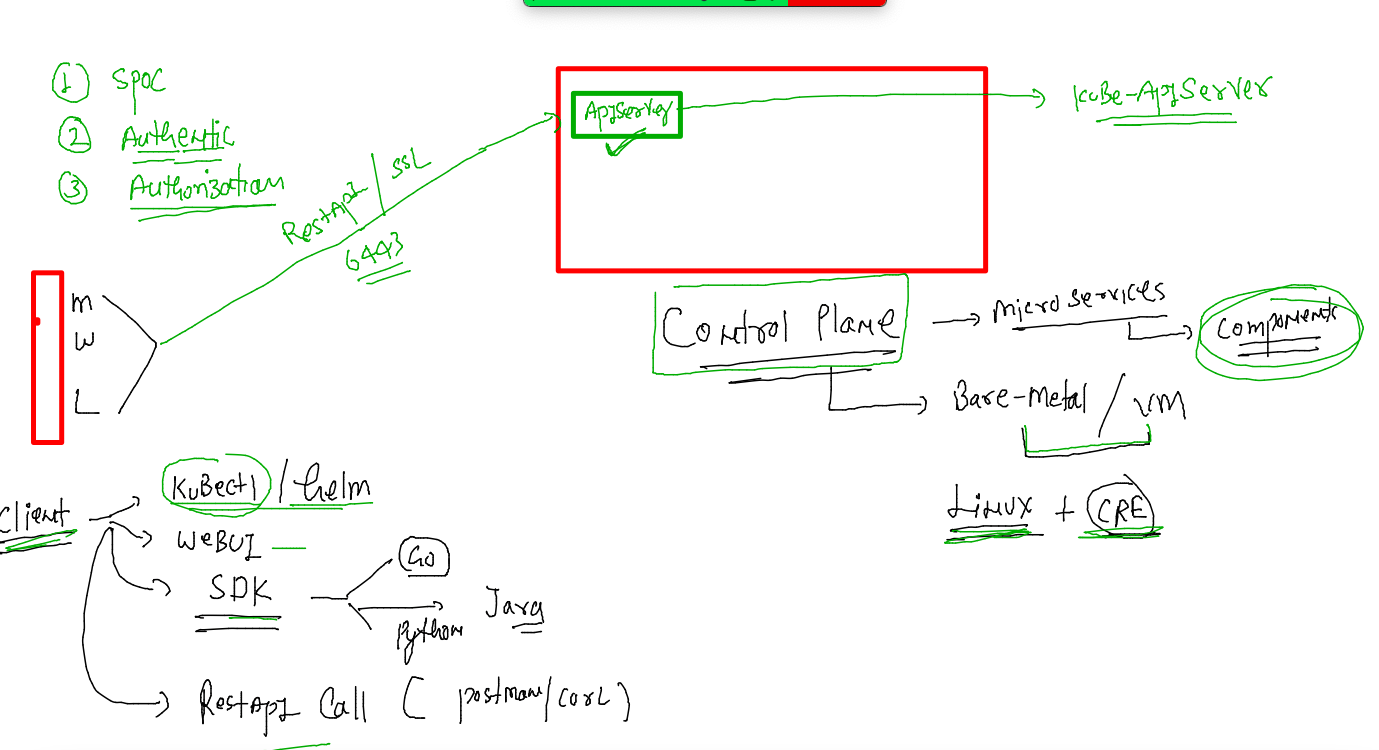 ① SPOC
② Authentic
③ Authorization
RestApI / SSL
6443
ApIServer
KuBe-ApIServer
M
W
L
Control Plane
Microservices
Components
Bare-Metal / VM
Linux + CRE
Client
KuBectl / helm
WeBUI
SDK
Go
Python
Java
RestApI Call ( postman/corL )